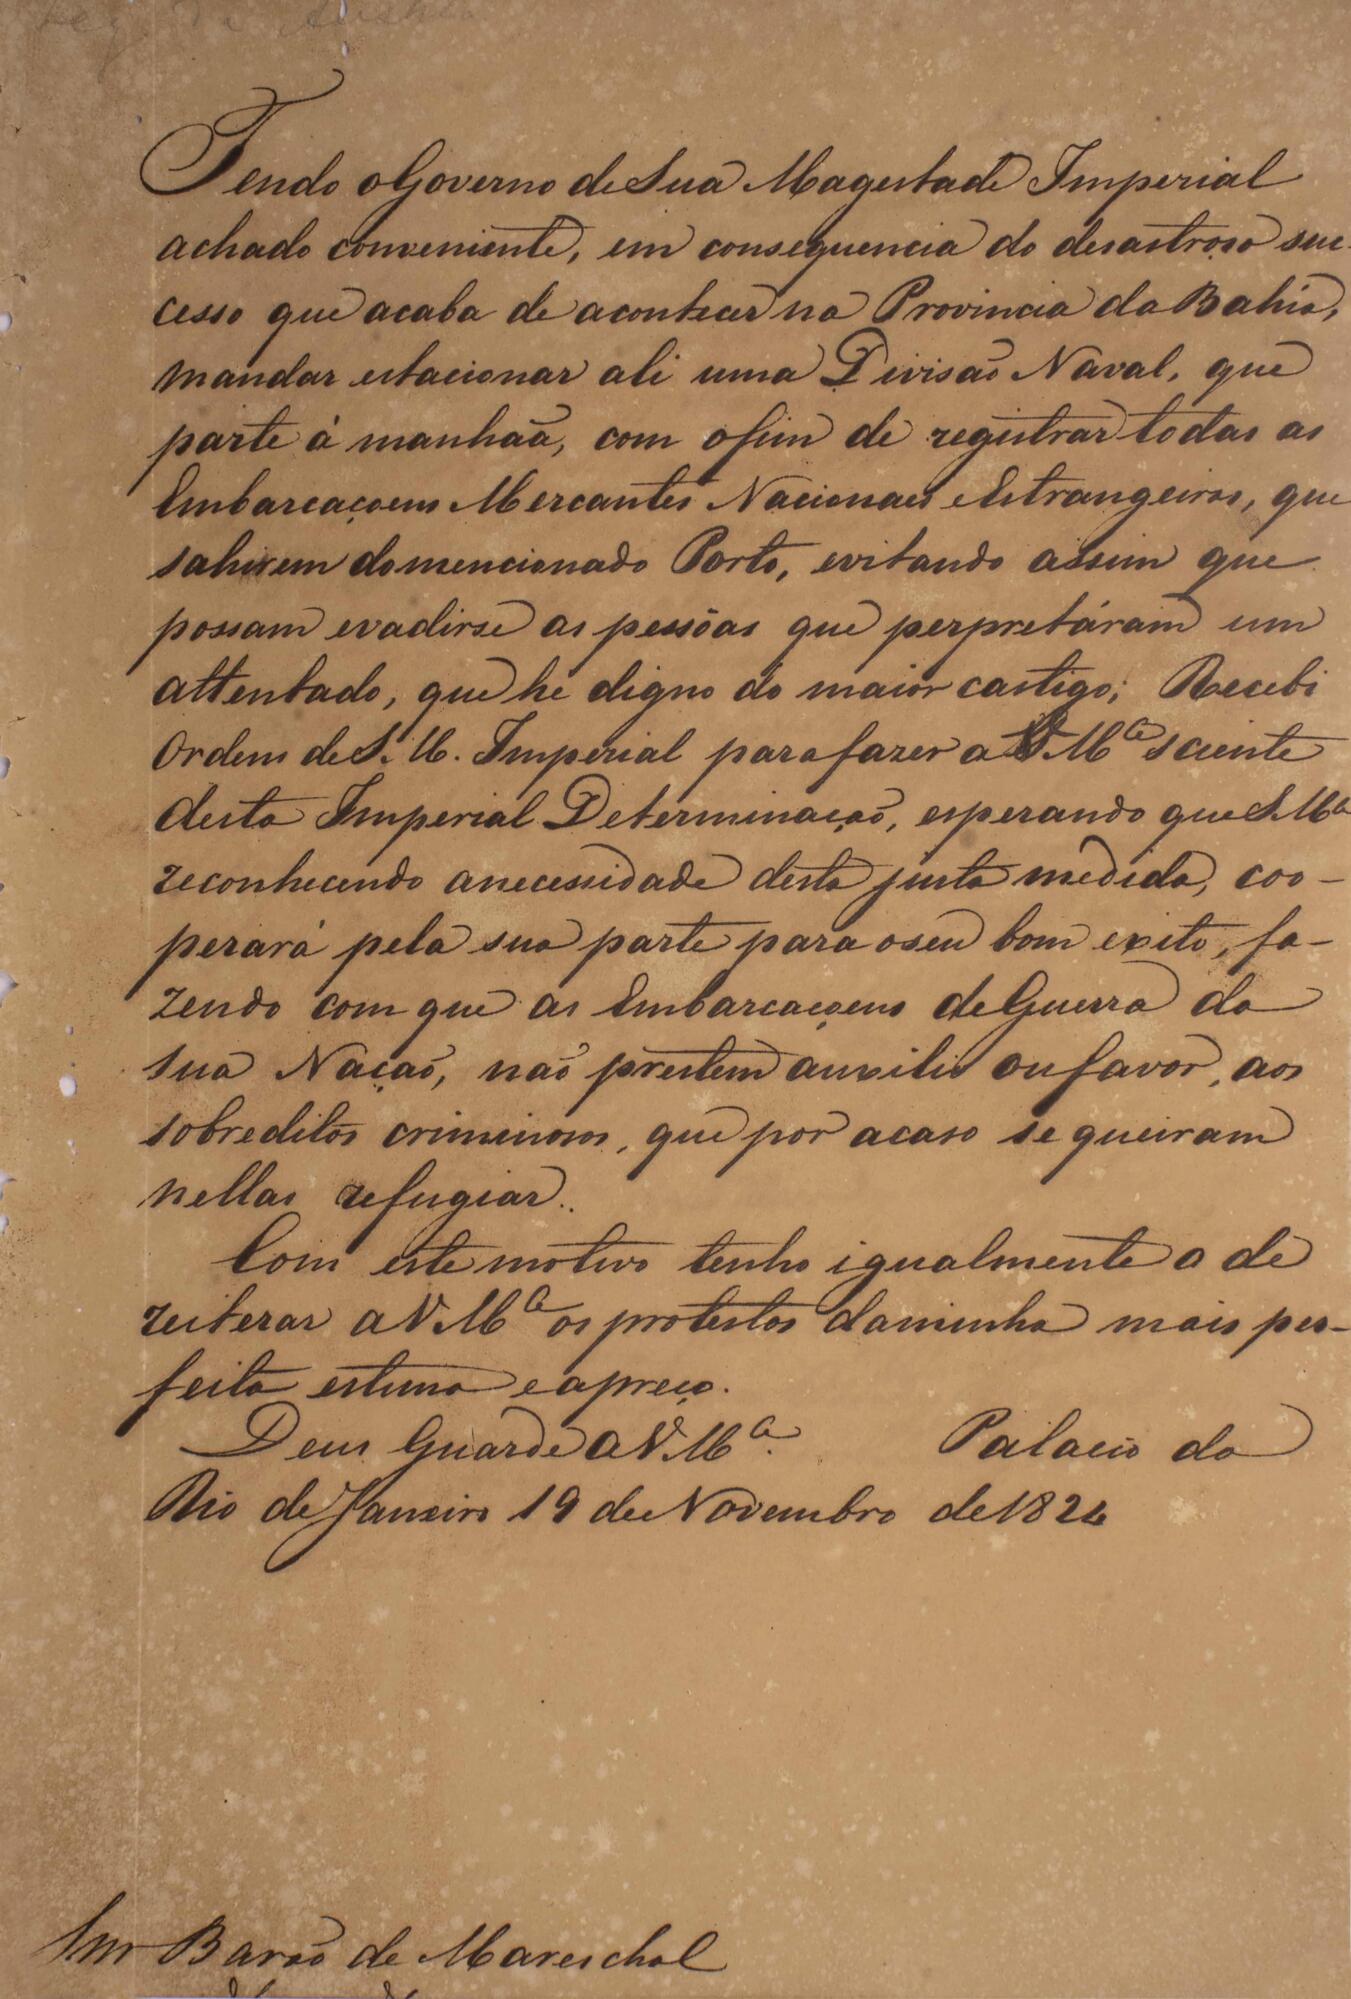 Tendo o Governo de Sua Magestade Imperial
achado conveniente, em consequencia do desastroso suc-
cesso que acaba de acontecer na Provincia da Bahia,
mandar estacionar ali uma Divisão Naval, que
parte á manhãa, com o fim de registrar todas as
Embarcaçoens Mercantes Nacionaes e Estrangeiras, que
sahirem do mencionado Porto, evitando assim que
possam evadirse as pessõas que perpretáram um
attentado, que he digno do maior castigo; Recebi
Ordem de S. M. Imperial para fazer a V. M.ce sciente
desta Imperial Determinação, esperando que S. M.ce
reconhecendo a necessidade desta justa medida, coo-
perará pela sua parte para o seu bom exito, fa-
zendo com que as Embarcaçoens de Guerra da
Sua Nação, não prestem auxilio ou favor, aos
sobreditos criminosos, que por acaso se queiram
nellas refugiar..
Com este motivo tenho igualmente o de
reiterar a V. M.ce os protestos da minha mais per-
feita estima e apreço.
Deus Guarde a V. M.ce. Palacio do
Rio de Janeiro 19 de Novembro de 1824
Snr Barão de Mareschal